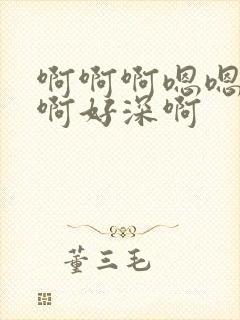 啊啊啊嗯嗯
啊好深啊
董三毛